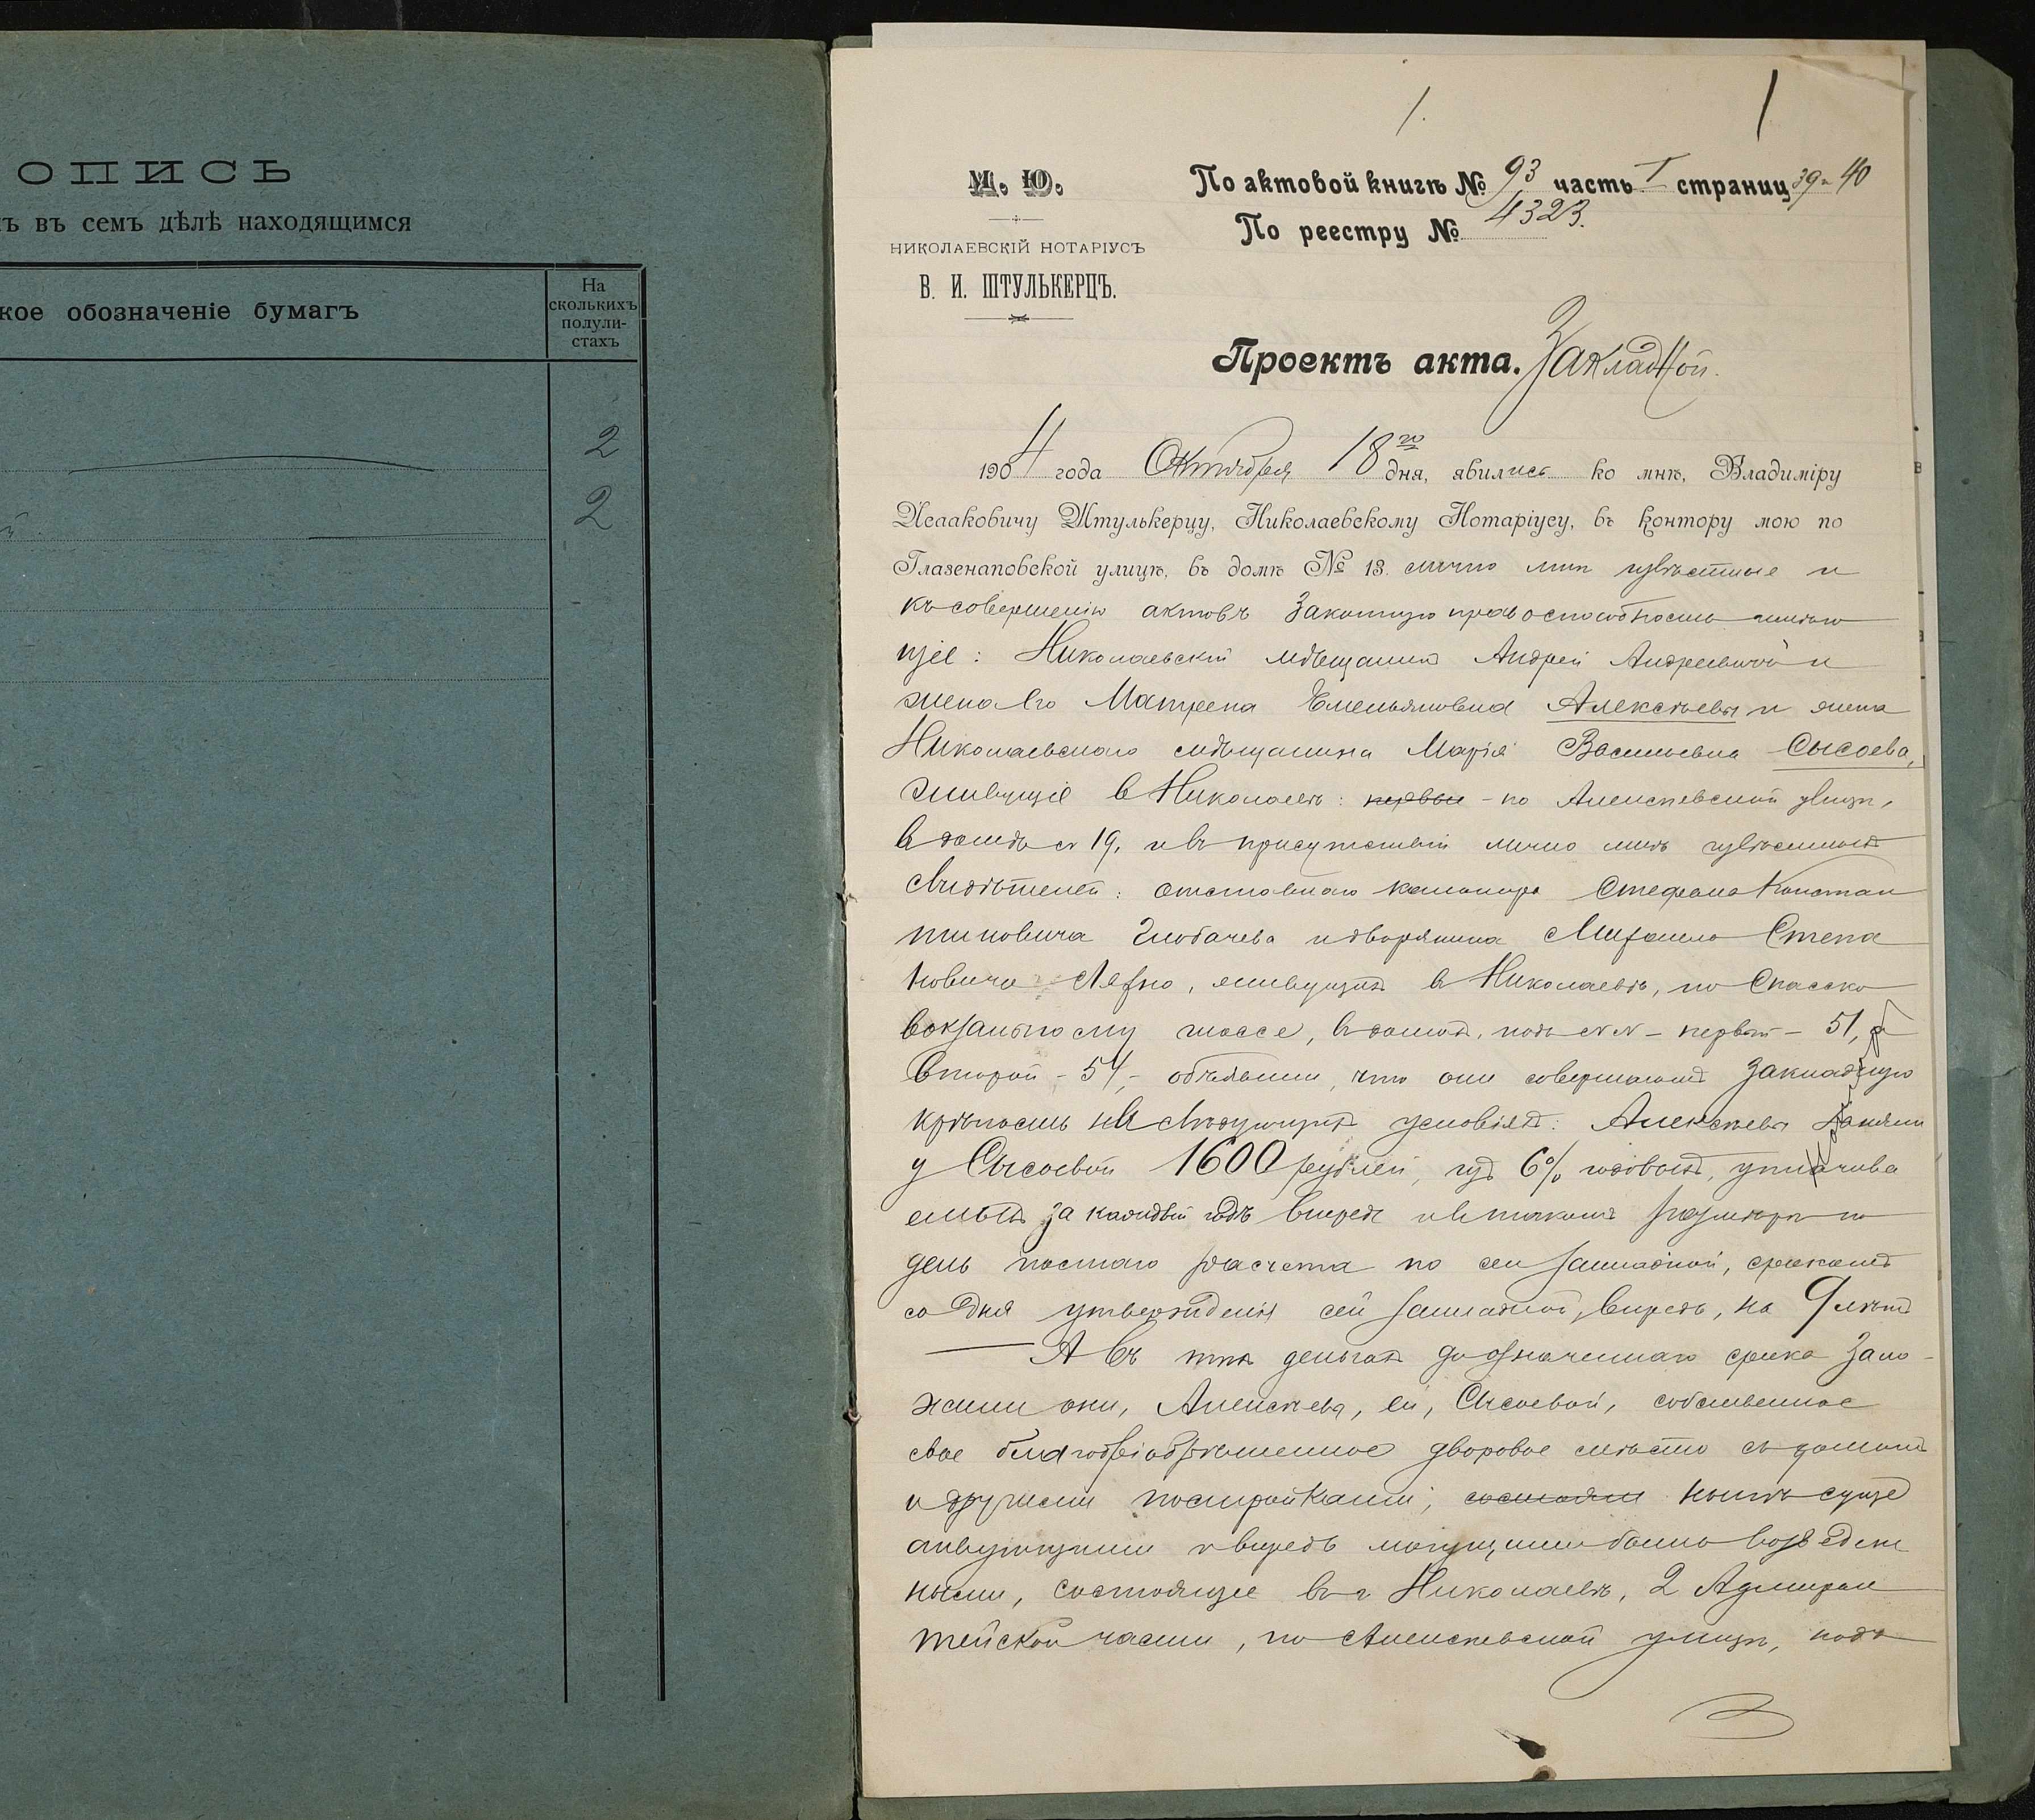 ОПИСЬ
ъ въ семъ дѣлѣ находящимся
кое обозначеніе бумагъ
На
сколькихъ
полули-
стахъ
2
2
1.
1
М. Ю.
НИКОЛАЕВСКІЙ НОТАРІУСЪ
В. И. ШТУЛЬКЕРЦЪ.
По актовой книгѣ № 93 часть I страниц 39-40
По реестру № 4323.
Проектъ акта. Закладной.
1904 года Октября 18го дня, явились ко мнѣ, Владиміру
Исааковичу Штулькерцу, Николаевскому Нотаріусу, въ контору мою по
Глазенаповской улицѣ, въ домѣ № 13. лично мнѣ извѣстные и
къ совершенію актовъ законную правоспособность имѣю
щіе: Николаевскій мѣщанинъ Андрей Андреевичъ и
жена его Матрена Емельяновна Алексѣевы и жена
Николаевскаго мѣщанина Марія Васильевна Сысоева,
живущіе въ Николаевѣ: первые - по Алексѣевской улицѣ,
въ домѣ № 19, и въ присутствіи лично мнѣ извѣстныхъ
свидѣтелей: отставного Стефана Констан
тиновича и дворянина Михаила Степа
новича живущихъ въ Николаевѣ, по Спасско
вокзальному шоссе, въ домахъ, подъ №№ - первый - 51, а
второй - 54, - объявили, что они совершаютъ закладную
крѣпость на слѣдующихъ условіяхъ: Алексѣевы заняли
у Сысоевой 1600 рублей, изъ 6% годовыхъ, уплачива
емыхъ за каждый годъ впередъ и въ такомъ размѣрѣ по
день полнаго расчета по сей закладной, срокомъ
со дня утвержденія сей закладной, впредь, на 9 лѣтъ
А въ тѣхъ деньгахъ до означеннаго срока зало-
жили они, Алексѣевы, ей, Сысоевой, собственное
свое благопріобрѣтенное дворовое мѣсто съ домомъ
и другими постройками, состоящ нынѣ суще
ствующими и впредь могущими быть возведен
ными, состоящее въ г. Николаевѣ, 2 Адмирал
тейской части, по Алексѣевской улицѣ, подъ